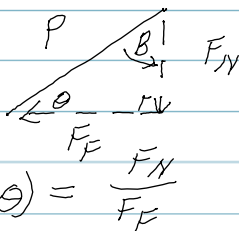 P
B
F_N
θ
F_F
θ) = F_N / F_F